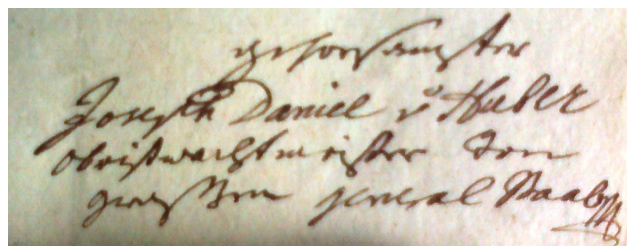 gehorsamster
Joseph Daniel v Huber
obristwachtmeister von
grossen general Staab